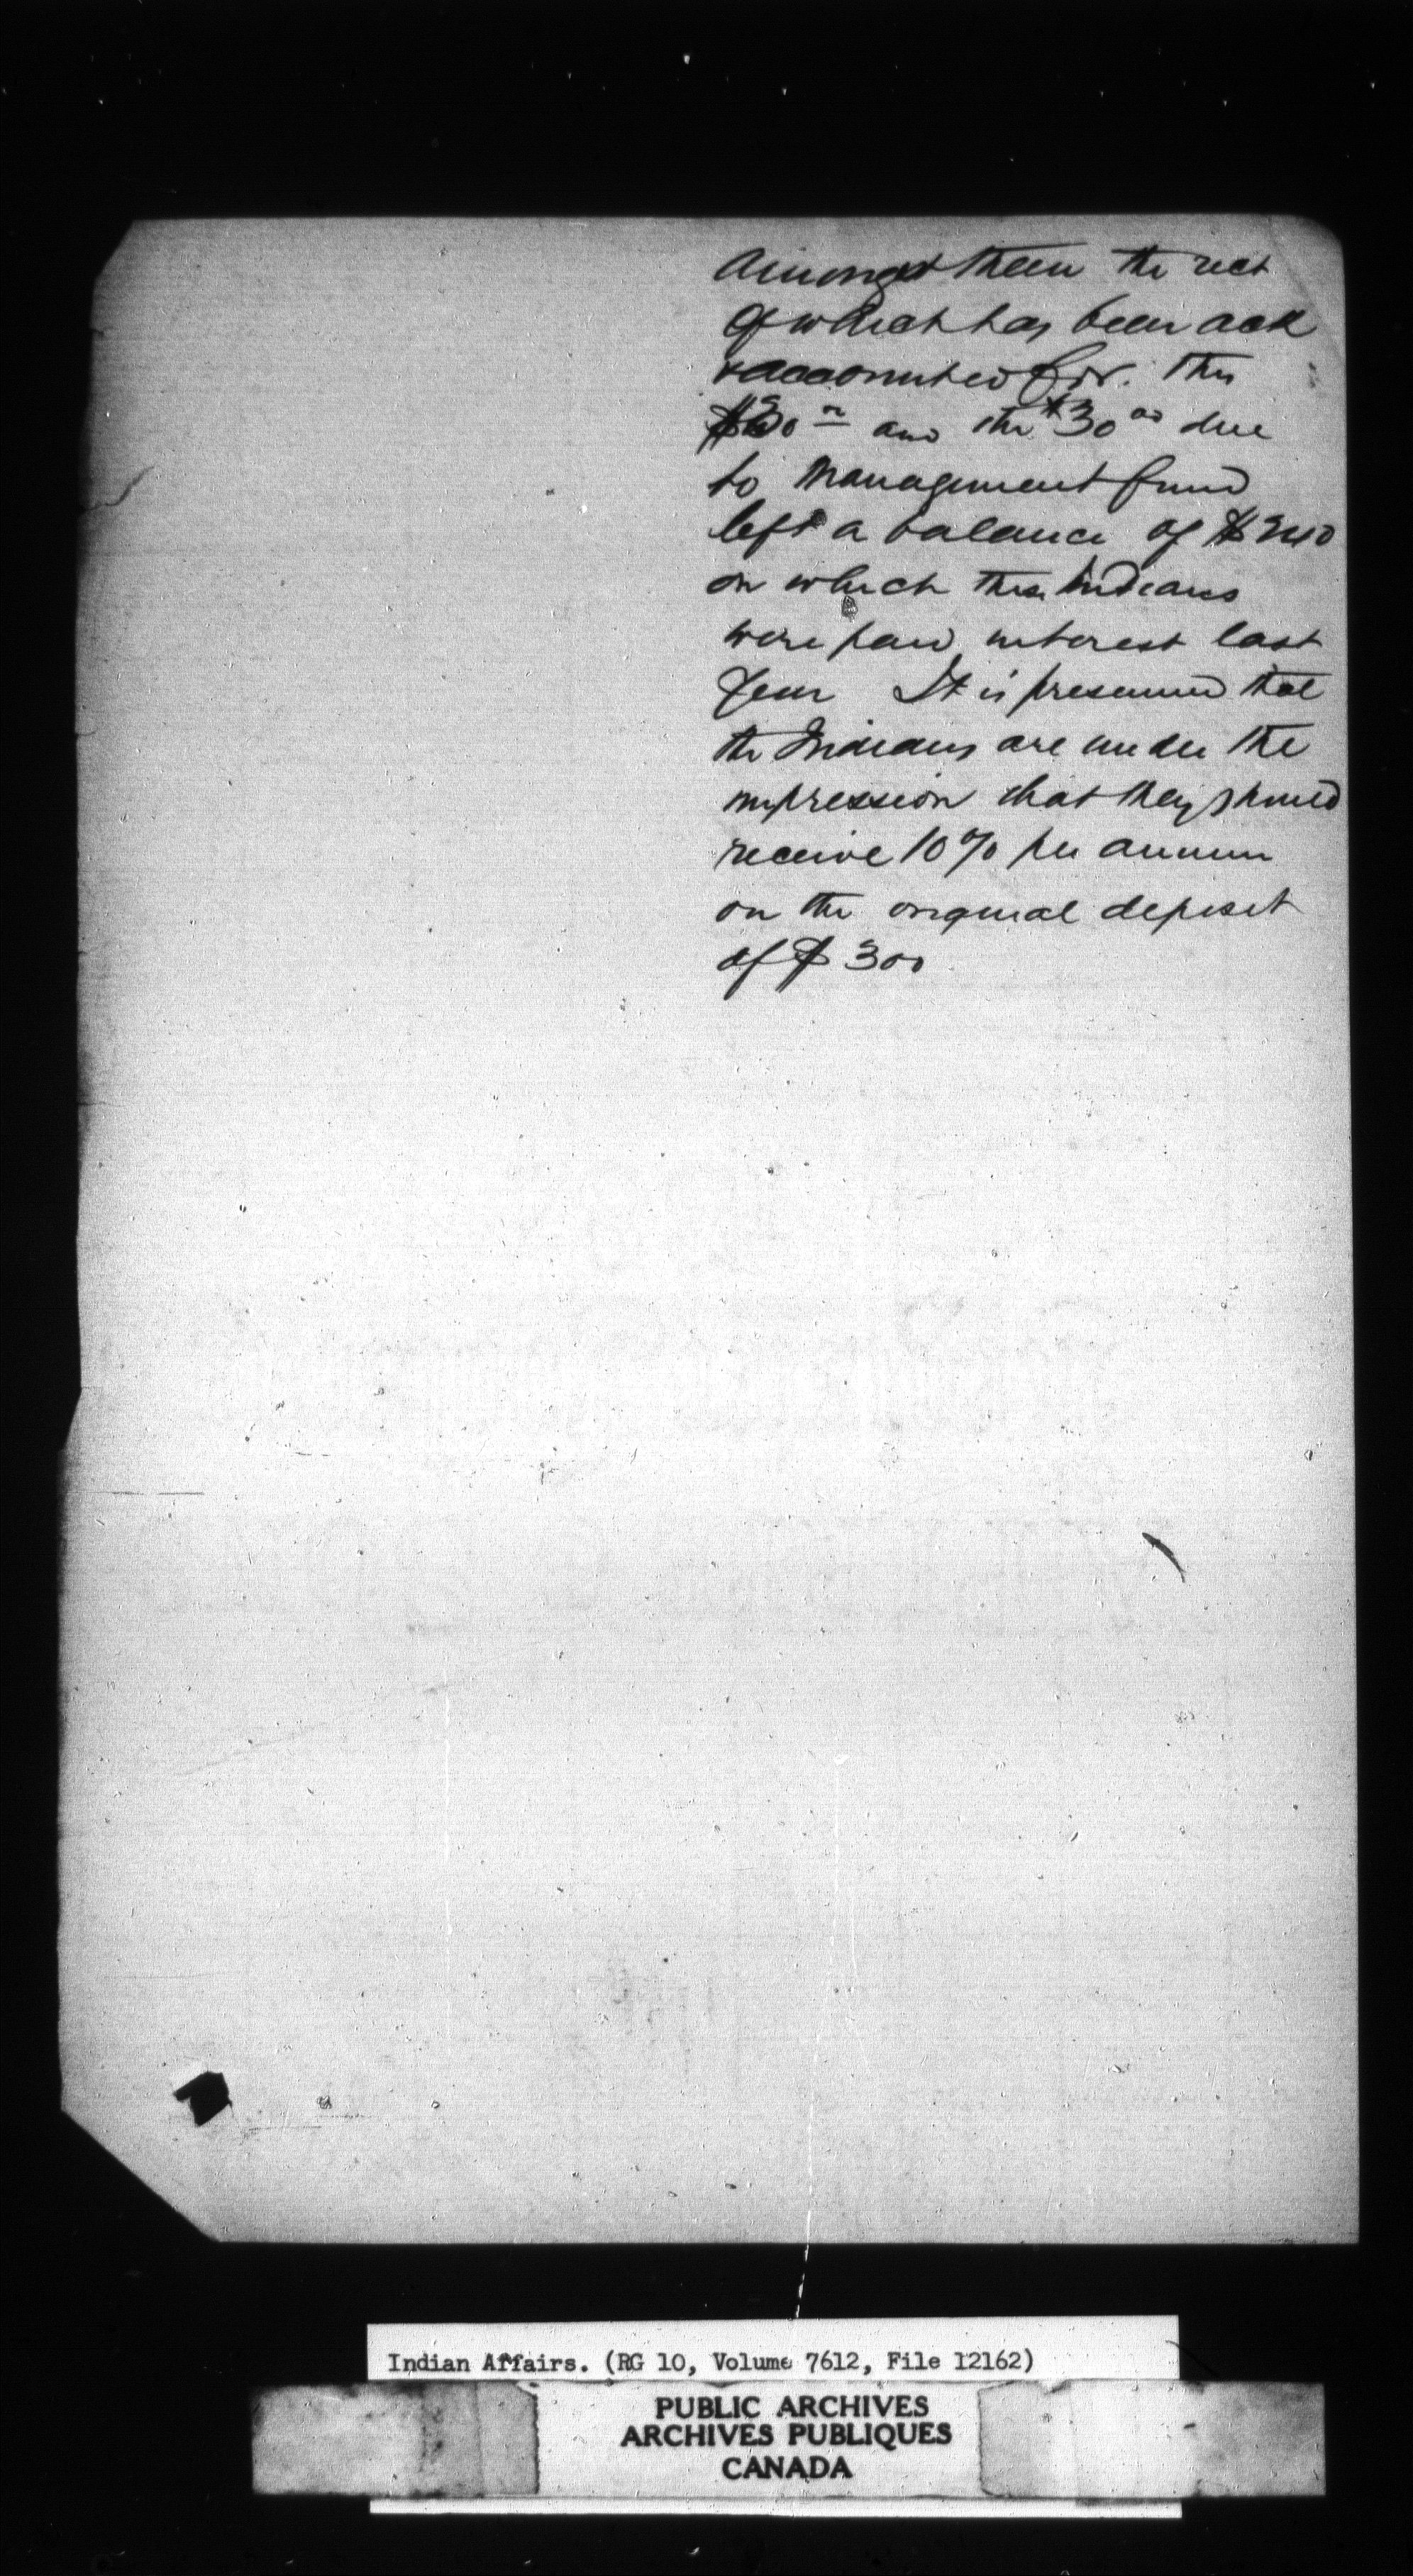 Amongst them the rect
of which has been ack
& accounted for. This
$30 00 and the $30 00 due
to Management fund
left a balance of $240
on which these Indians
were paid interest last
year It is presumed that
the Indians are under the
impression that they should
receive 10% per annum
on the original deposit
of $300
Indian Affairs. (RG 10, Volume 7612, File 12162)
PUBLIC ARCHIVES
ARCHIVES PUBLIQUES
CANADA